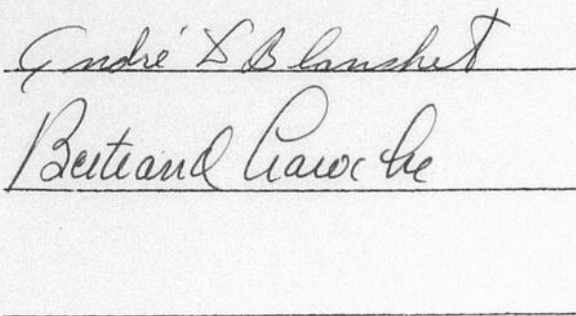 André L Blanchet
Bertrand Laroche